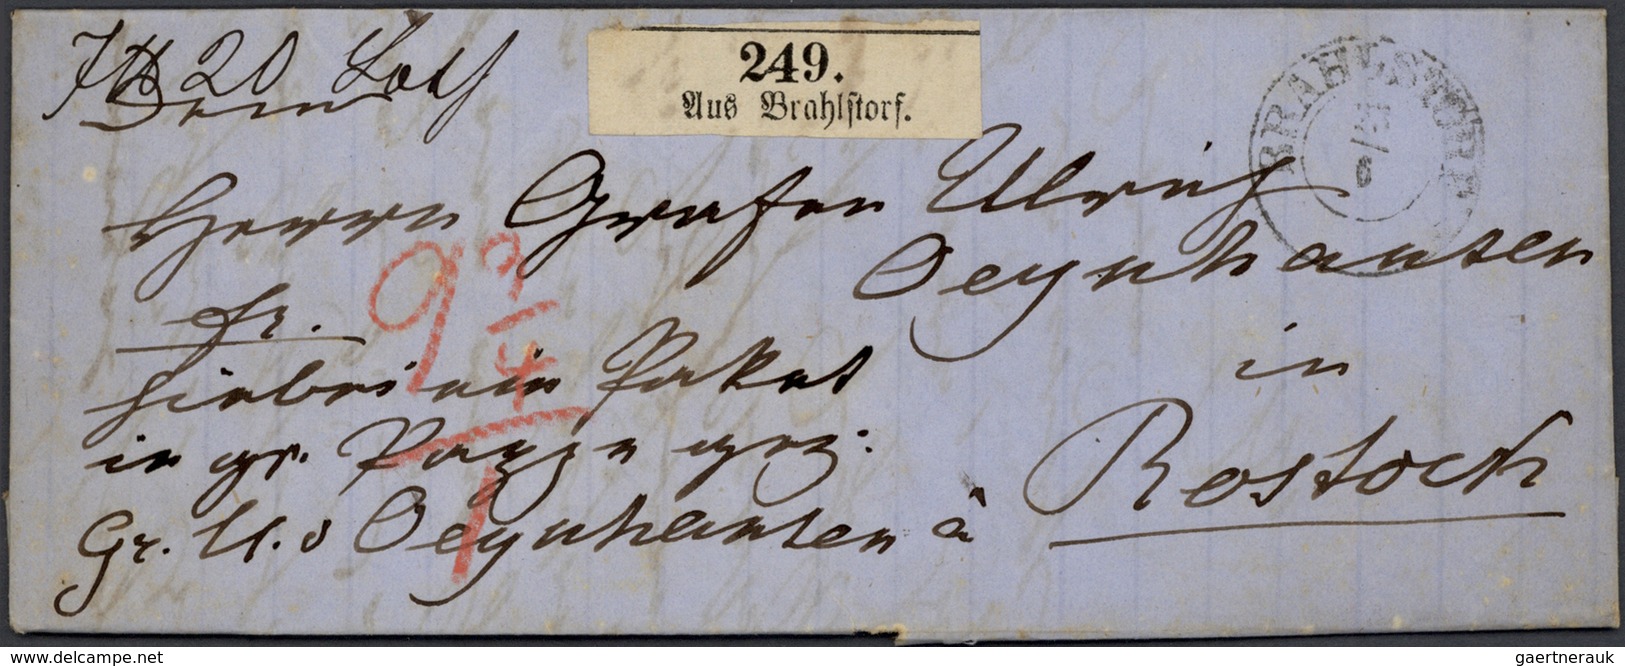 7 ℔ 20 Loth
249.
Aus Brahlstorf.
BRAHLSTORF
Herrn Grafen Ulrich
Oeynhausen
fr.
9 3/4
hiebei ein Paket
in
in gr. Papier gez:
Rostock
Gr. U. O Oeynhausen à
1
www.delcampe.net
gaertnerauk